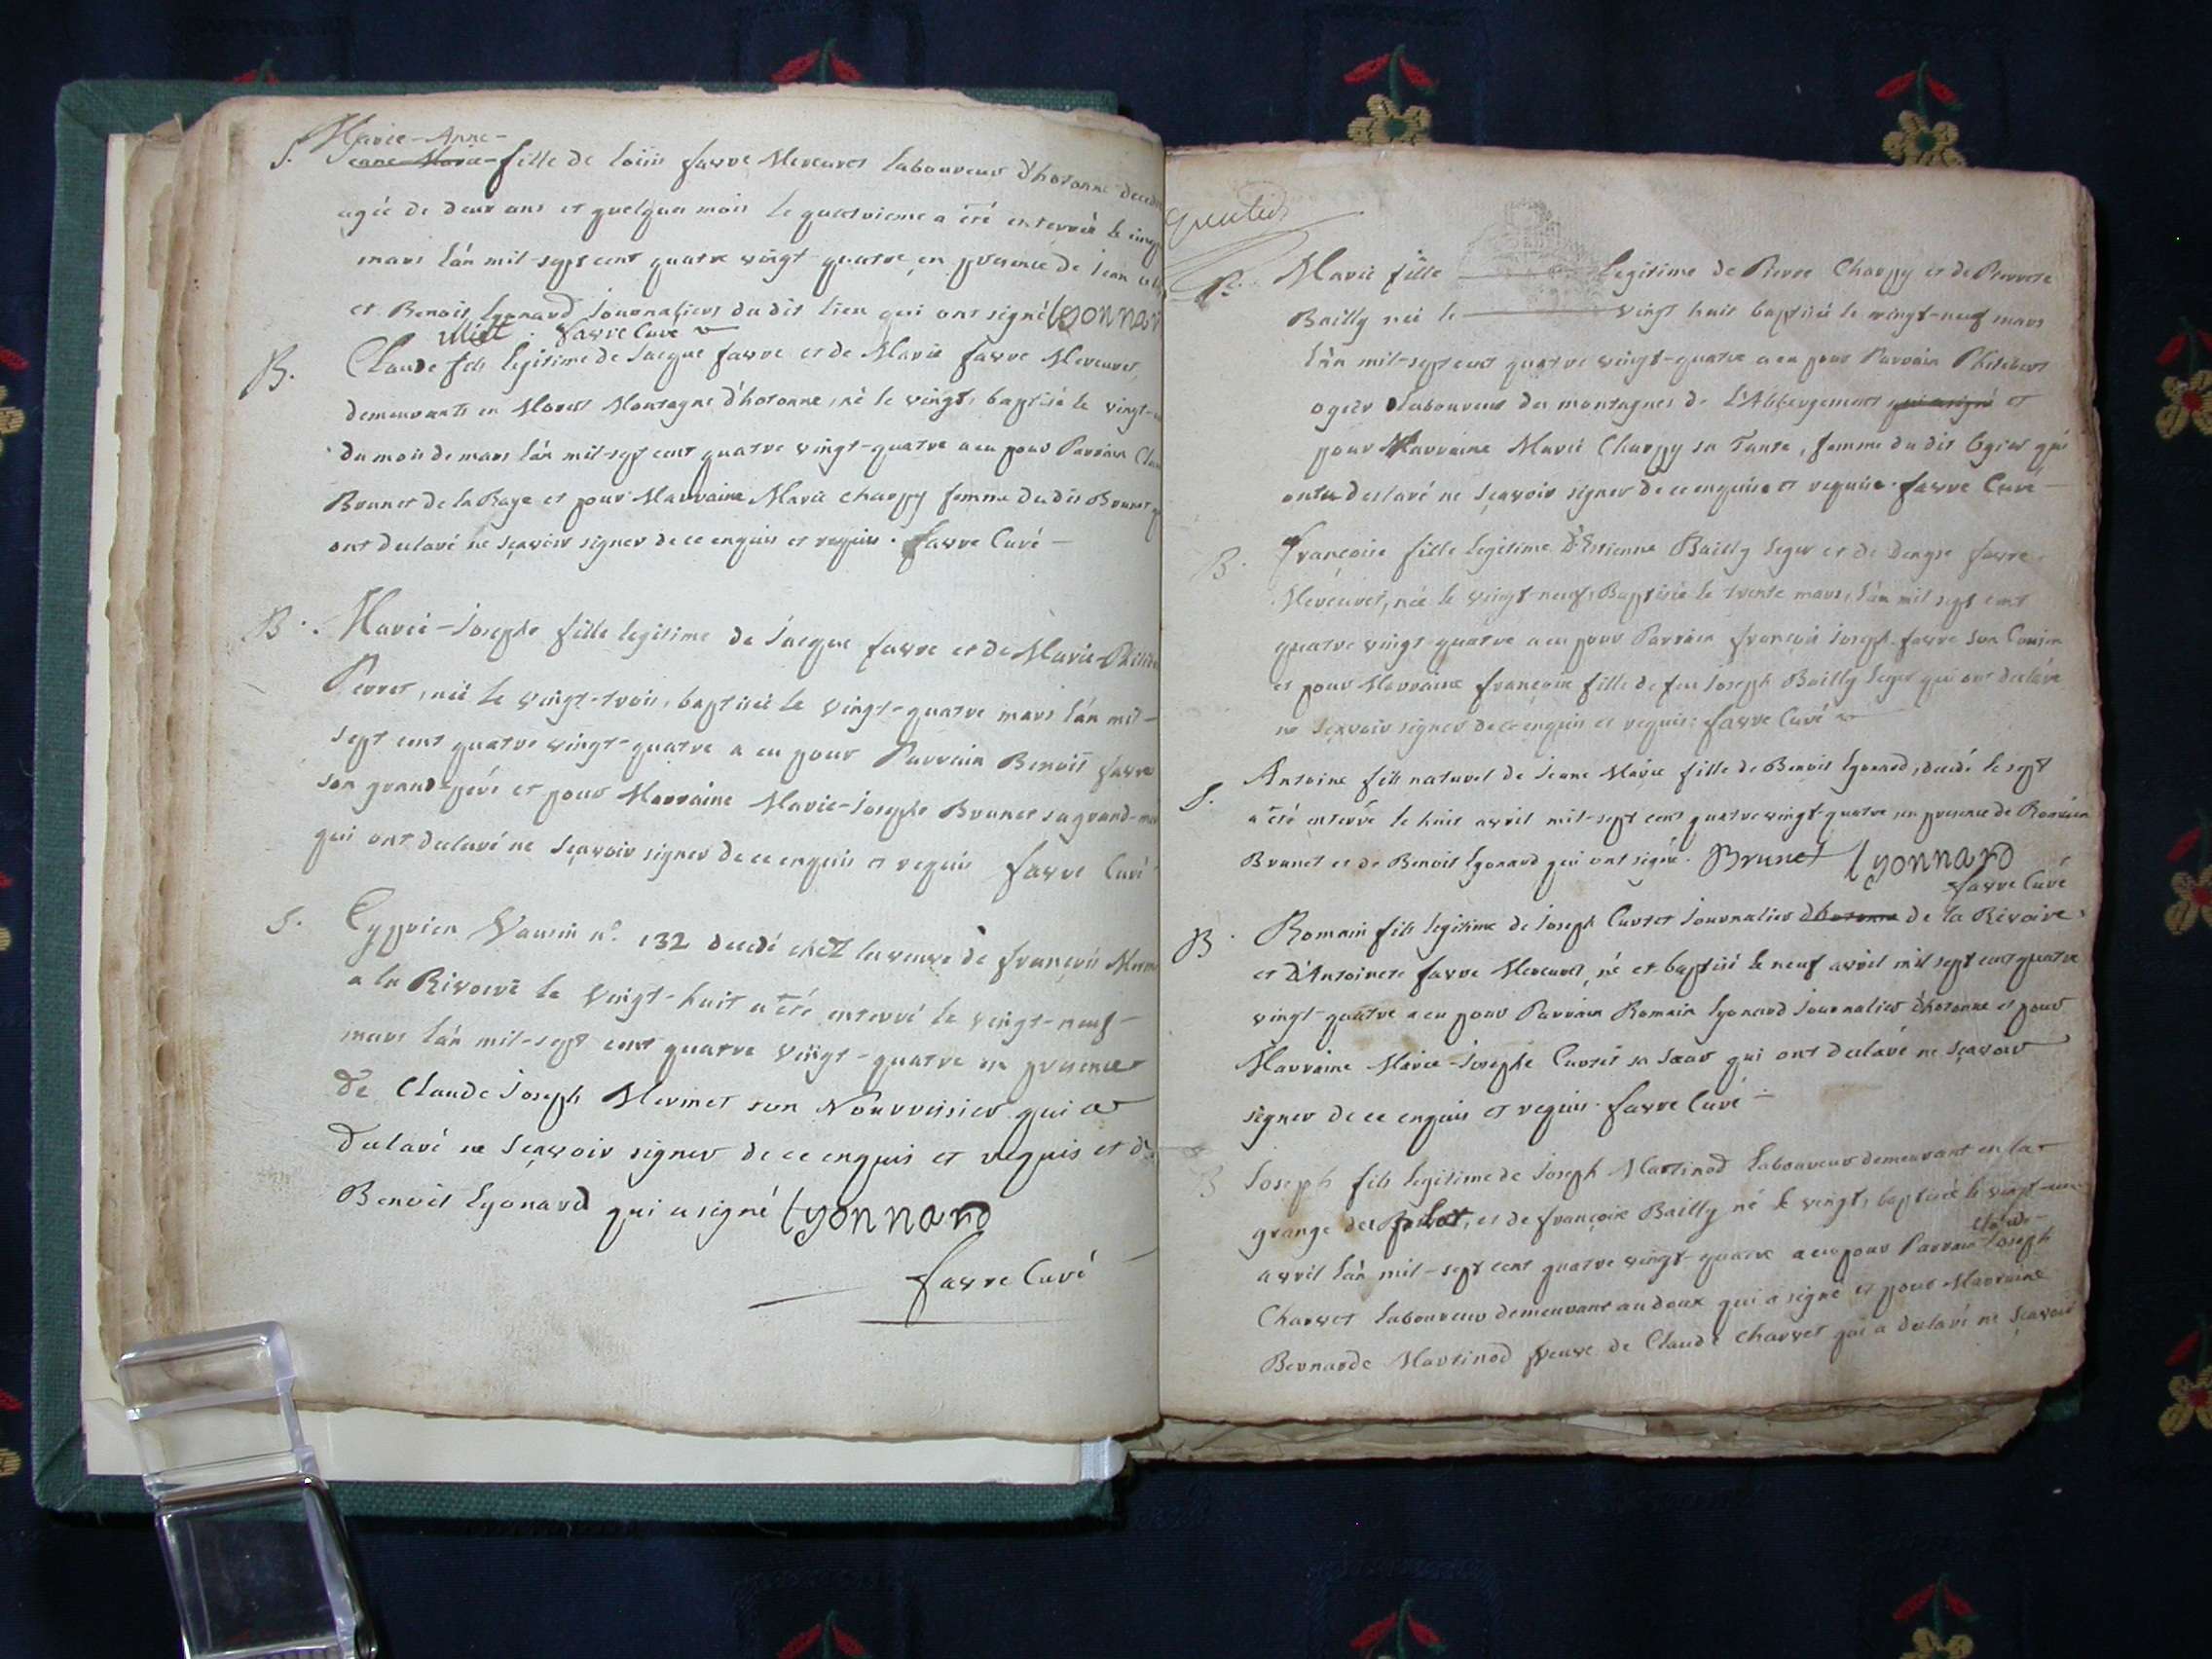 Marie-Anne-
S. Jeane Marie fille de loüis favre Mercuret laboureur d'hotonne
agée de deux ans et quelques mois le quatrieme a été enterrée le cinq
mars l'an mil-sept cent quatre vingt-quatre, en presence de Jean
et Benoit lyonard Journaliers du dit lieu qui ont signé lyonnar
favre Curé
B. Claude fils legitime de Jacque favre et de Marie favre Mercuret,
demeurants en Montagne d'hotonne, né le vingt, baptisé le vingt-
du mois de mars l'an mil-sept cent quatre vingt-quatre a eu pour Parrain
Brunet de la Raye et pour Marraine Marie charpy femme du dit Brunet
ont declaré ne sçavoir signer de ce enquis et requis. favre Curé
B. Marie-Josephe fille legitime de Jacque favre et de Marie
Perret, née le vingt-trois, baptisée le vingt-quatre mars l'an mil-
sept cent quatre vingt-quatre a eu pour Parrain Benoit favre
son grand-pére et pour Marraine Marie-Josephe Brunet sa grand-
qui ont declaré ne sçavoir signer de ce enquis et requis favre Curé
S. Cyprien n° 132 decedé chez la veuve de françois
a la Rivoire le vingt-huit a été enterré le vingt-neuf
mars l'an mil-sept cent quatre vingt-quatre en presence
de Claude Joseph Mermet son Nourrissier qui a
declaré ne sçavoir signer de ce enquis et requis et de
Benoit lyonard qui a signé lyonnard
favre Curé
B. Marie fille legitime de Pierre Charpy et de Pierrete
Bailly née le vingt huit baptisée le vingt-neuf mars
l'an mil-sept cent quatre vingt-quatre a eu pour Parrain Philibert
ogier laboureur des montagnes de L'Abbergement qui a signé et
pour Marraine Marie Charpy sa Tante, femme du dit Ogier qui
ont declaré ne sçavoir signer de ce enquis et requis. favre Curé
B. françoise fille legitime d'Estienne Bailly leger et de denyse favre
Mercuret, née le vingt-neuf, Baptisée le trente mars, l'an mil sept cent
quatre vingt-quatre a eu pour Parrain françois Joseph favre son Cousin
et pour Marraine françoise fille de feu Joseph Bailly leger qui ont declaré
ne sçavoir signer de ce enquis et requis: favre Curé
S. Antoine fils naturel de Jeane Marie fille de Benoit lyonard, decedé le sept
a été enterré le huit avril mil-sept cent quatre vingt-quatre en presence de Romain
Brunet et de Benoit lyonard qui ont signé. Brunet lyonnard
favre Curé
B. Romain fils legitime de Joseph Curtet Journalier d'hotonne de la Rivoire
et d'Antoinete favre Mercuret, né et baptisé le neuf avril mil sept cent quatre
vingt-quatre a eu pour Parrain Romain lyonard Journalier d'hotonne et pour
Marraine Marie-Josephe Curtet sa sœur qui ont declaré ne sçavoir
signer de ce enquis et requis. favre Curé
B Joseph fils legitime de Joseph Martinod laboureur demeurant en la
grange de, et de françoise Bailly né le vingt, baptisé le vingt-
Claude-
avril l'an mil-sept cent quatre vingt-quatre a eu pour Parrain Joseph
Charvet laboureur demeurant au qui a signé et pour Marraine
Bernarde Martinod veuve de Claude Charvet qui a declaré ne sçavoir